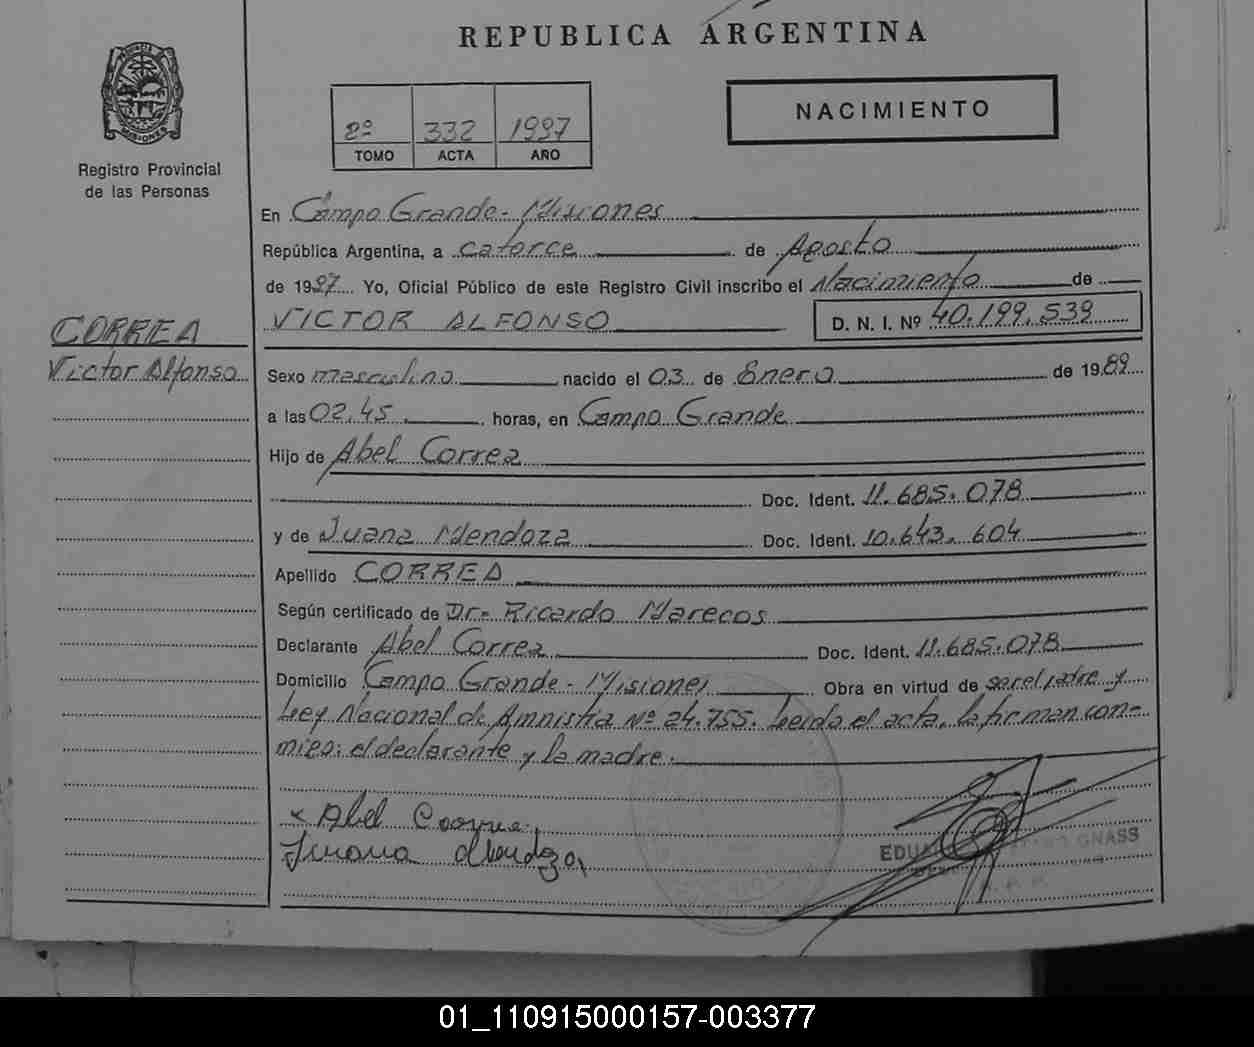 REPUBLICA ARGENTINA
PROVINCIA DE MISIONES
Registro Provincial
de las Personas
2º 332 1997
TOMO ACTA AÑO
NACIMIENTO
En Campo Grande - Misiones
República Argentina, a catorce de Agosto
de 1997 Yo, Oficial Público de este Registro Civil inscribo el Nacimiento de
VICTOR ALFONSO D. N. I. Nº 40.199.539
CORREA
Victor Alfonso
Sexo masculino nacido el 03 de Enero de 1989
a las 02.45 horas, en Campo Grande
Hijo de Abel Correa
Doc. Ident. 11.685.078
y de Juana Mendoza Doc. Ident. 10.643.604
Apellido CORREA
Según certificado de Dr. Ricardo Marecos
Declarante Abel Correa Doc. Ident. 11.685.078
Domicilio Campo Grande - Misiones Obra en virtud de ser el padre y
Ley Nacional de Amnistía Nº 24.755. Leída el acta, la firman con-
migo: el declarante y la madre.
x Abel Coorrea
Juana Mendoza
EDU GNASS
01_110915000157-003377